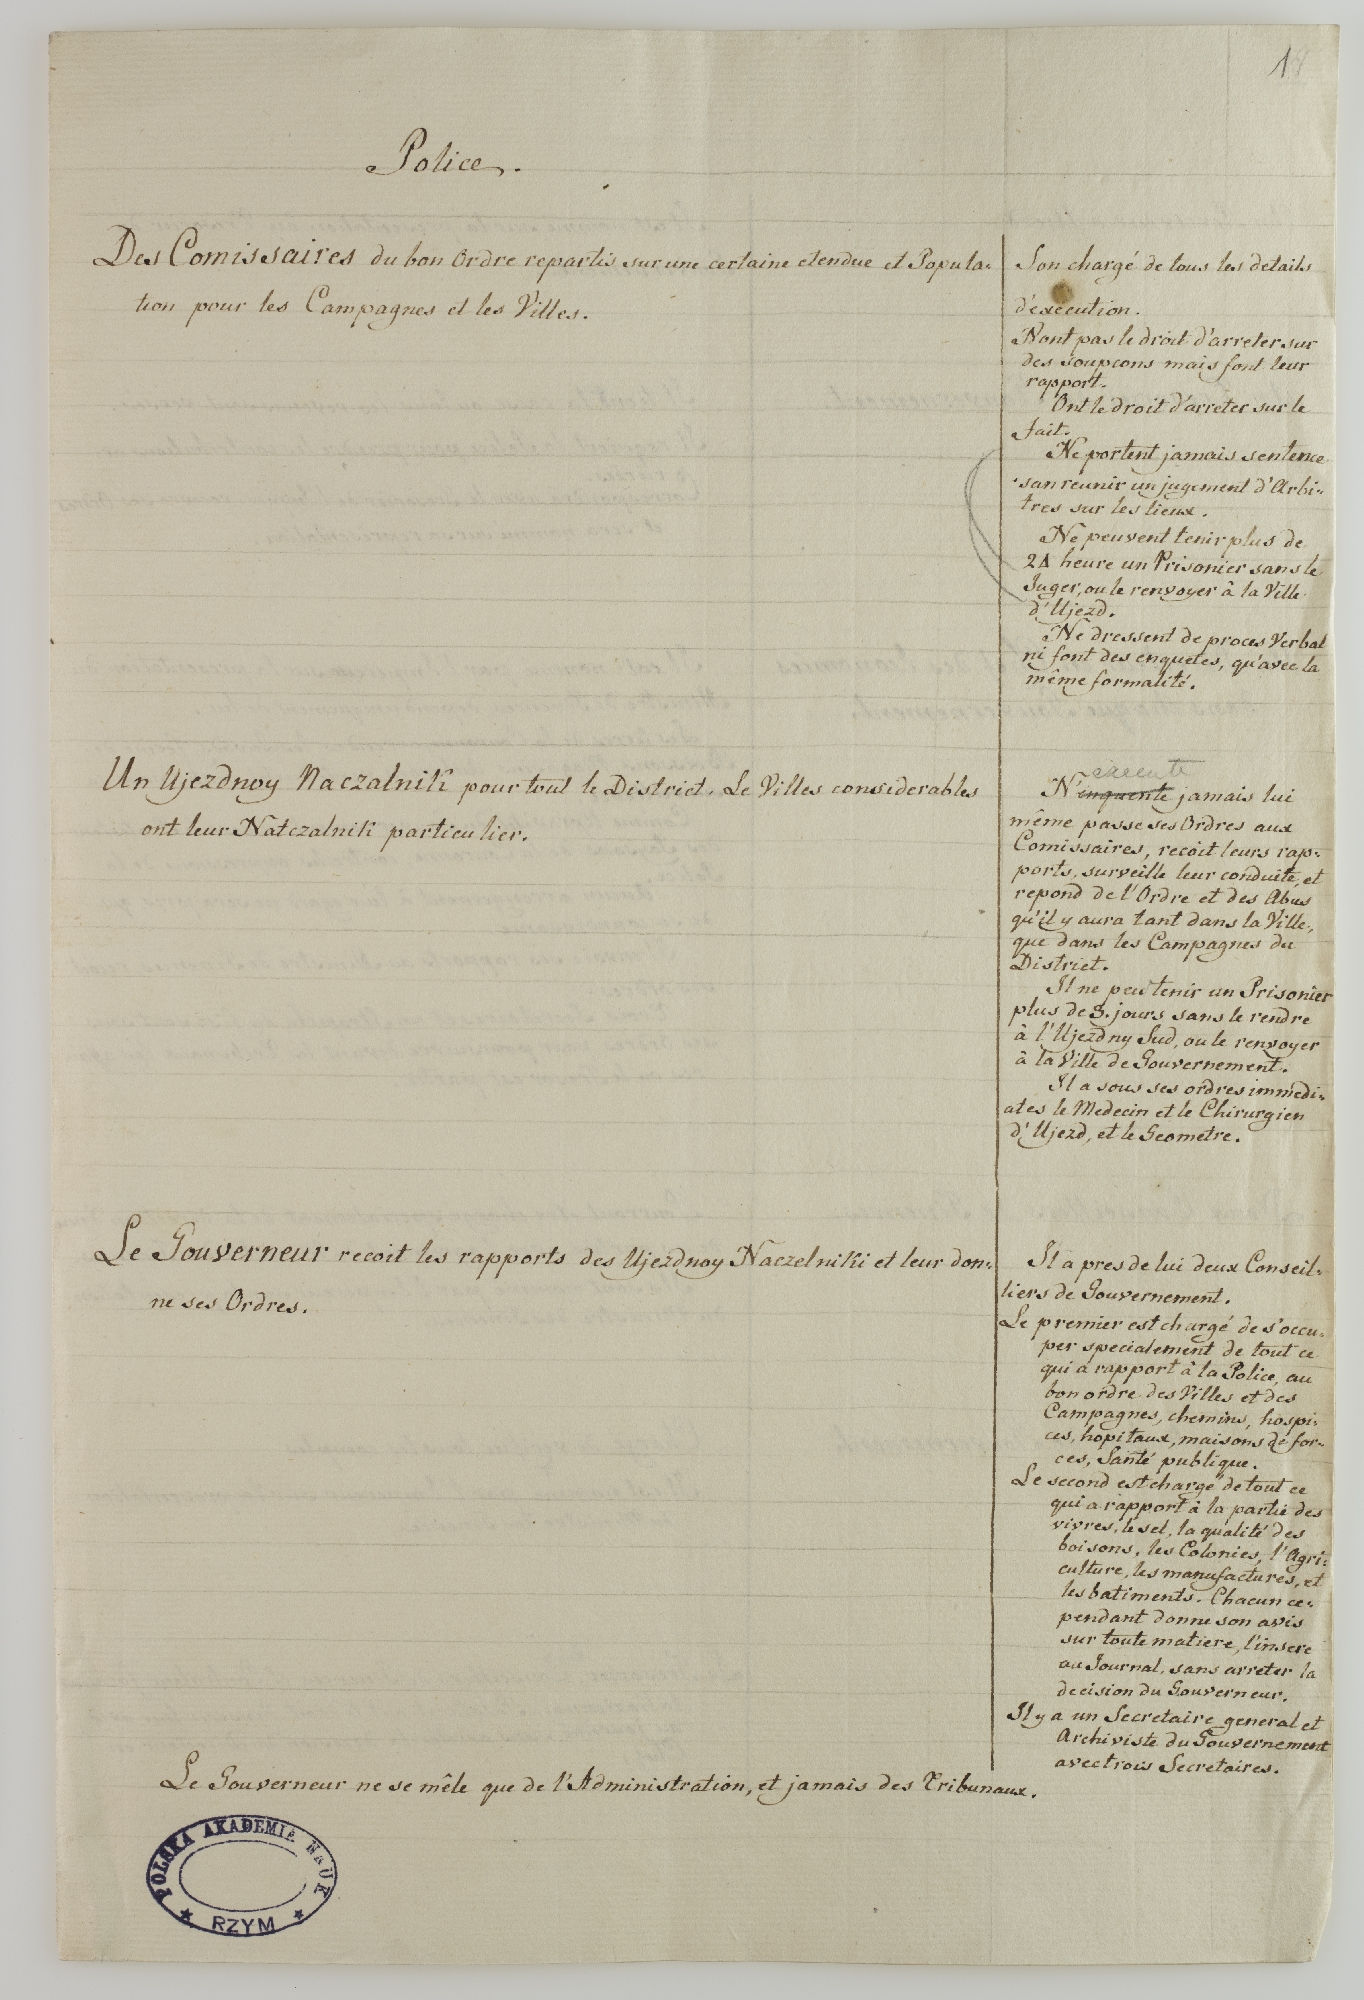 1
Police.
Des Comissaires du bon Ordre repartis sur une certaine etendue et Popula-
tion pour les Campagnes et les Villes.
Son chargé de tous les details
d'execution.
N'ont pas le droit d'arreter sur
des soupcons mais font leur
rapport.
Ont le droit d'arreter sur le
fait.
Ne portent jamais sentence
san reunir un jugement d'Arbi-
tres sur les lieux.
Ne peuvent tenir plus de
24 heure un Prisonier sans le
Juger, ou le renvoyer à la Ville
d'Ujezd.
Ne dressent de proces Verbal
ni font des enquetes, qu'avec la
même formalité.
Un Ujezdnoy Naczalnik pour tout le District. Le Villes considerables
ont leur Natczalnik particulier.
execute
N'enquente jamais lui
même passe ses Ordres aux
Comissaires, recoit leurs rap-
ports, surveille leur conduite, et
repond de l'Ordre et des Abus
qu'il y aura tant dans la Ville,
que dans les Campagnes du
District.
Il ne peu tenir un Prisonier
plus de 3. jours sans le rendre
à l'Ujezdny Sud, ou le renvoyer
à la Ville de Gouvernement.
Il a sous ses ordres immedi-
ates le Medecin et le Chirurgien
d'Ujezd, et le Geometre.
Le Gouverneur recoit les rapports des Ujezdnoy Naczelniki et leur don-
ne ses Ordres.
Il a pres de lui deux Conseil-
liers de Gouvernement.
Le premier est chargé de s'occu-
per specialement de tout ce
qui a rapport à la Police, au
bon ordre des Villes et des
Campagnes, chemins, hospi-
ces, hopitaux, maisons de for-
ces, Santé publique.
Le second est chargé de tout ce
qui a rapport à la partie des
vivres, le sel, la qualité des
boisons, les Colonies, l'Agri-
culture, les manufactures, et
les batiments. Chacun ce-
pendant donne son avis
sur toute matiere, l'insere
au Journal, sans arreter la
decision du Gouverneur.
Il y a un Secretaire general et
Archiviste du Gouvernement
avec trois Secretaires.
Le Gouverneur ne se mêle que de l'Administration, et jamais des Tribunaux.
POLSKA AKADEMIA NAUK
★ RZYM ★